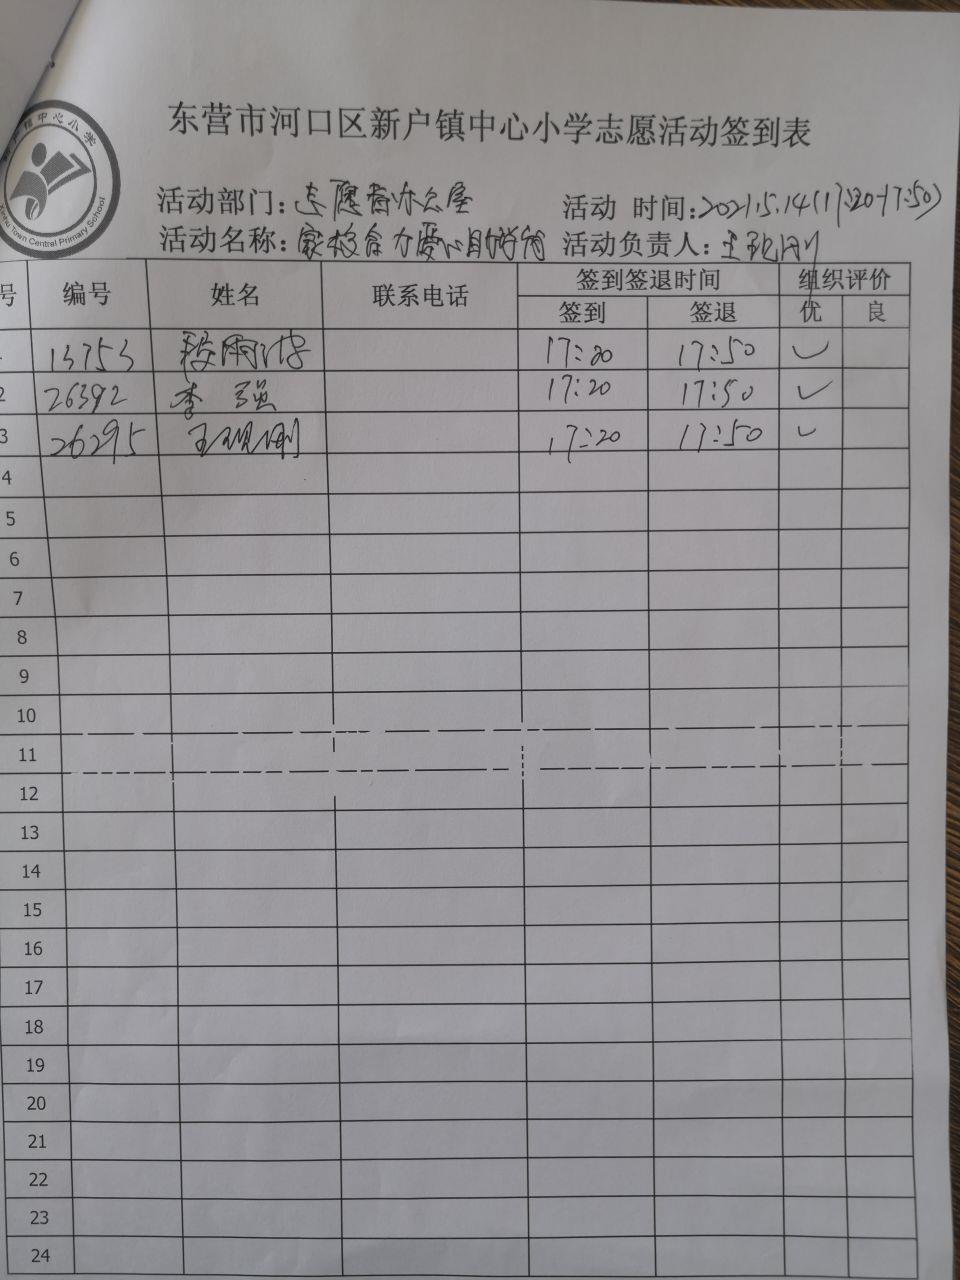 东营市河口区新户镇中心小学志愿活动签到表
中心小学
Xinhu Town Central Primary School
活动部门: 志愿者办公室 活动 时间: 2021.5.14(17:20-17:50)
活动名称: 家校合力爱心 活动负责人: 王砚刚
号 编号 姓名 联系电话 签到签退时间 组织评价
签到 签退 优 良
13753 17:20 17:50 ✓
2 26392 李强 17:20 17:50 ✓
3 26295 王砚刚 17:20 17:50 ✓
4
5
6
7
8
9
10
11
12
13
14
15
16
17
18
19
20
21
22
23
24